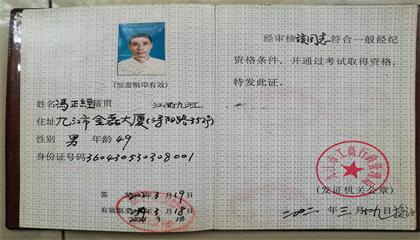 (加盖钢印有效)
姓名 冯正经 籍贯 江西九江
住址 九江市金磊大厦(浔阳路352号)
性别 男 年龄 49
身份证号码 360430530308001
签 2002年3月19日
有效期至 年3月18日
经审核该同志符合一般经纪
资格条件，并通过考试取得资格，
特发此证。
九江市工商行政管理局
(发证机关公章)
二〇〇二年三月十九日